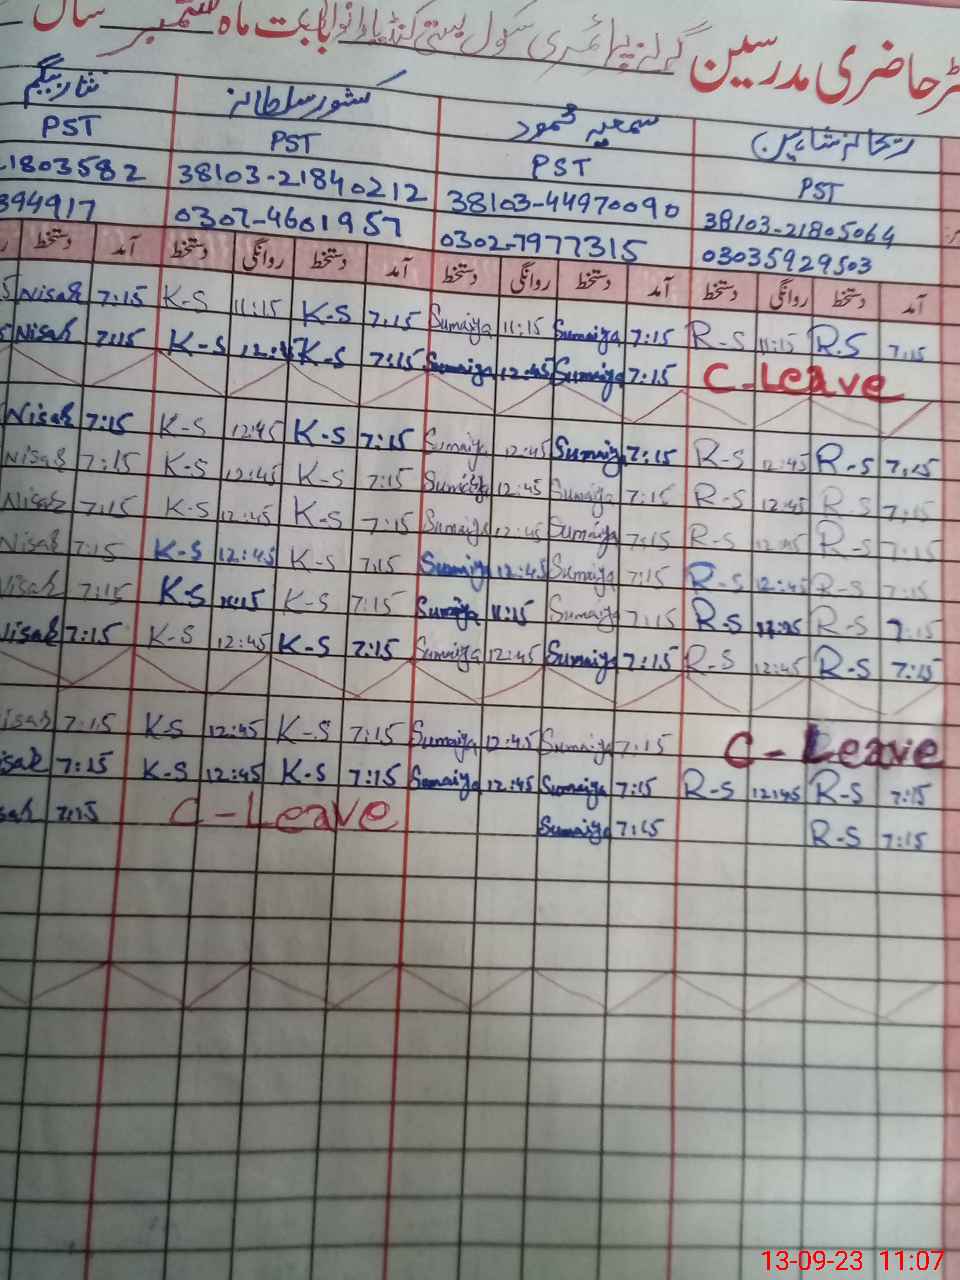 حاضری مدرسین گرلز پرائمری سکول بستی بابت ماہ ستمبر سال
ریحانہ شاہین سمعیہ محمود کشور سلطانہ نثار بیگم
PST PST PST PST
38103-21805064 38103-44970090 38103-21840212 1803582
03035929503 0302-7977315 0307-4601957 394917
آمد دستخط روانگی دستخط آمد دستخط روانگی دستخط آمد دستخط روانگی دستخط آمد دستخط
7:15 R.S 11:15 R-S 7:15 Sumaiya 11:15 Sumaiya 7:15 K-S 11:15 K-S 7:15 Nisah
C-Leave 7:15 Sumaiya 12:45 Sumaiya 7:15 K-S 12:45 K-S 7:15 Nisah
7:15 R-S 12:45 R-S 7:15 Sumaiya 12:45 Sumaiya 7:15 K-S 12:45 K-S 7:15 Nisah
7:15 R-S 12:45 R-S 7:15 Sumaiya 12:45 Sumaiya 7:15 K-S 12:45 K-S 7:15 Nisah
7:15 R-S 12:45 R-S 7:15 Sumaiya 12:45 Sumaiya 7:15 K-S 12:45 K-S 7:15 Nisah
7:15 R-S 12:45 R-S 7:15 Sumaiya 12:45 Sumaiya 7:15 K-S 12:45 K-S 7:15 Nisah
7:15 R-S R-S 7:15 Sumaiya 11:15 Sumaiya 7:15 K-S 11:15 K-S 7:15 Nisah
7:15 R-S 12:45 R-S 7:15 Sumaiya 12:45 Sumaiya 7:15 K-S 12:45 K-S 7:15 Nisah
C-Leave 7:15 Sumaiya 12:45 Sumaiya 7:15 K-S 12:45 K-S 7:15 isah
7:15 R-S 12:45 R-S 7:15 Sumaiya 12:45 Sumaiya 7:15 K-S 12:45 K-S 7:15 isah
7:15 R-S 7:15 Sumaiya C-Leave 7:15 sah
13-09-23 11:07